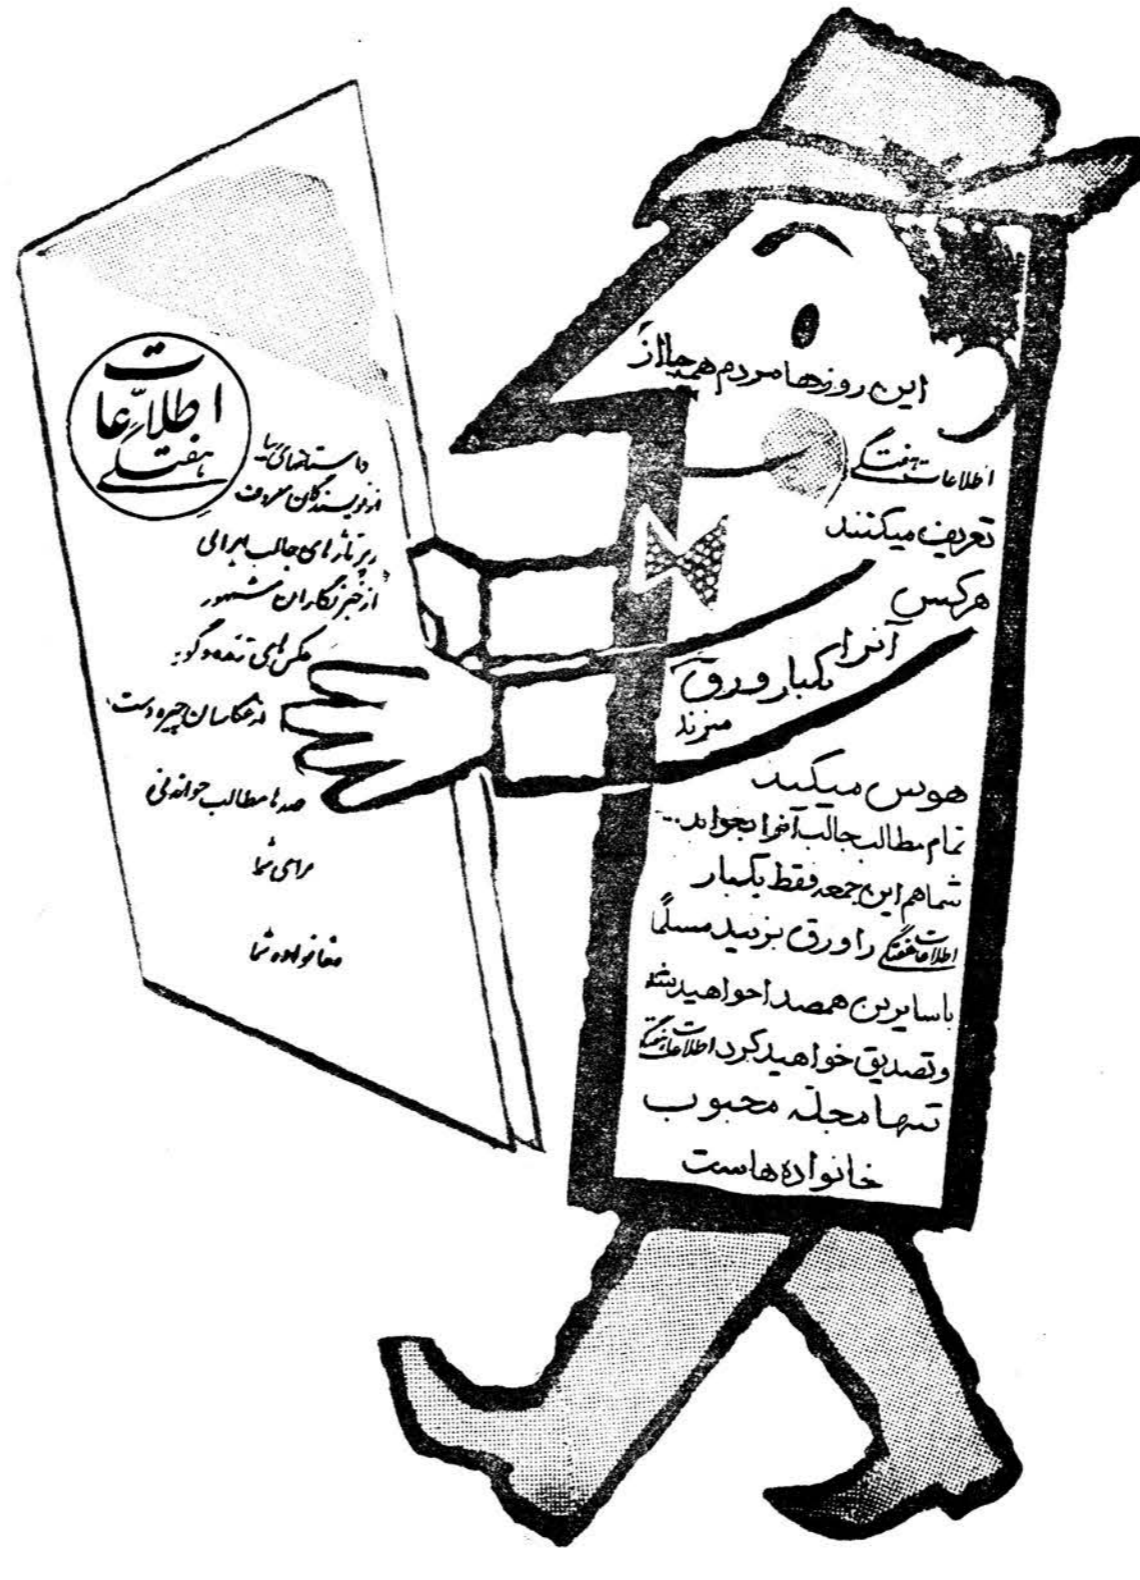 اطلاعات
هفتگی
داستانهای زیبا
از نویسندگان معروف
رپرتاژهای جالب ایرانی
از خبرنگاران مشهور
عکس های زنده و گویا
از عکاسان چیره دست
صدها مطالب خواندنی
برای شما
و خانواده شما
این روزها مردم همه جا از
اطلاعات هفتگی
تعریف میکنند
هرکس
آنرا
یکبار ورق
میزند
هوس میکند
تمام مطالب جالب آنرا بخواند...
شما هم این جمعه فقط یکبار
اطلاعات هفتگی را ورق بزنید مسلماً
با سایرین همصدا خواهید شد
و تصدیق خواهید کرد اطلاعات هفتگی
تنها مجله محبوب
خانواده هاست